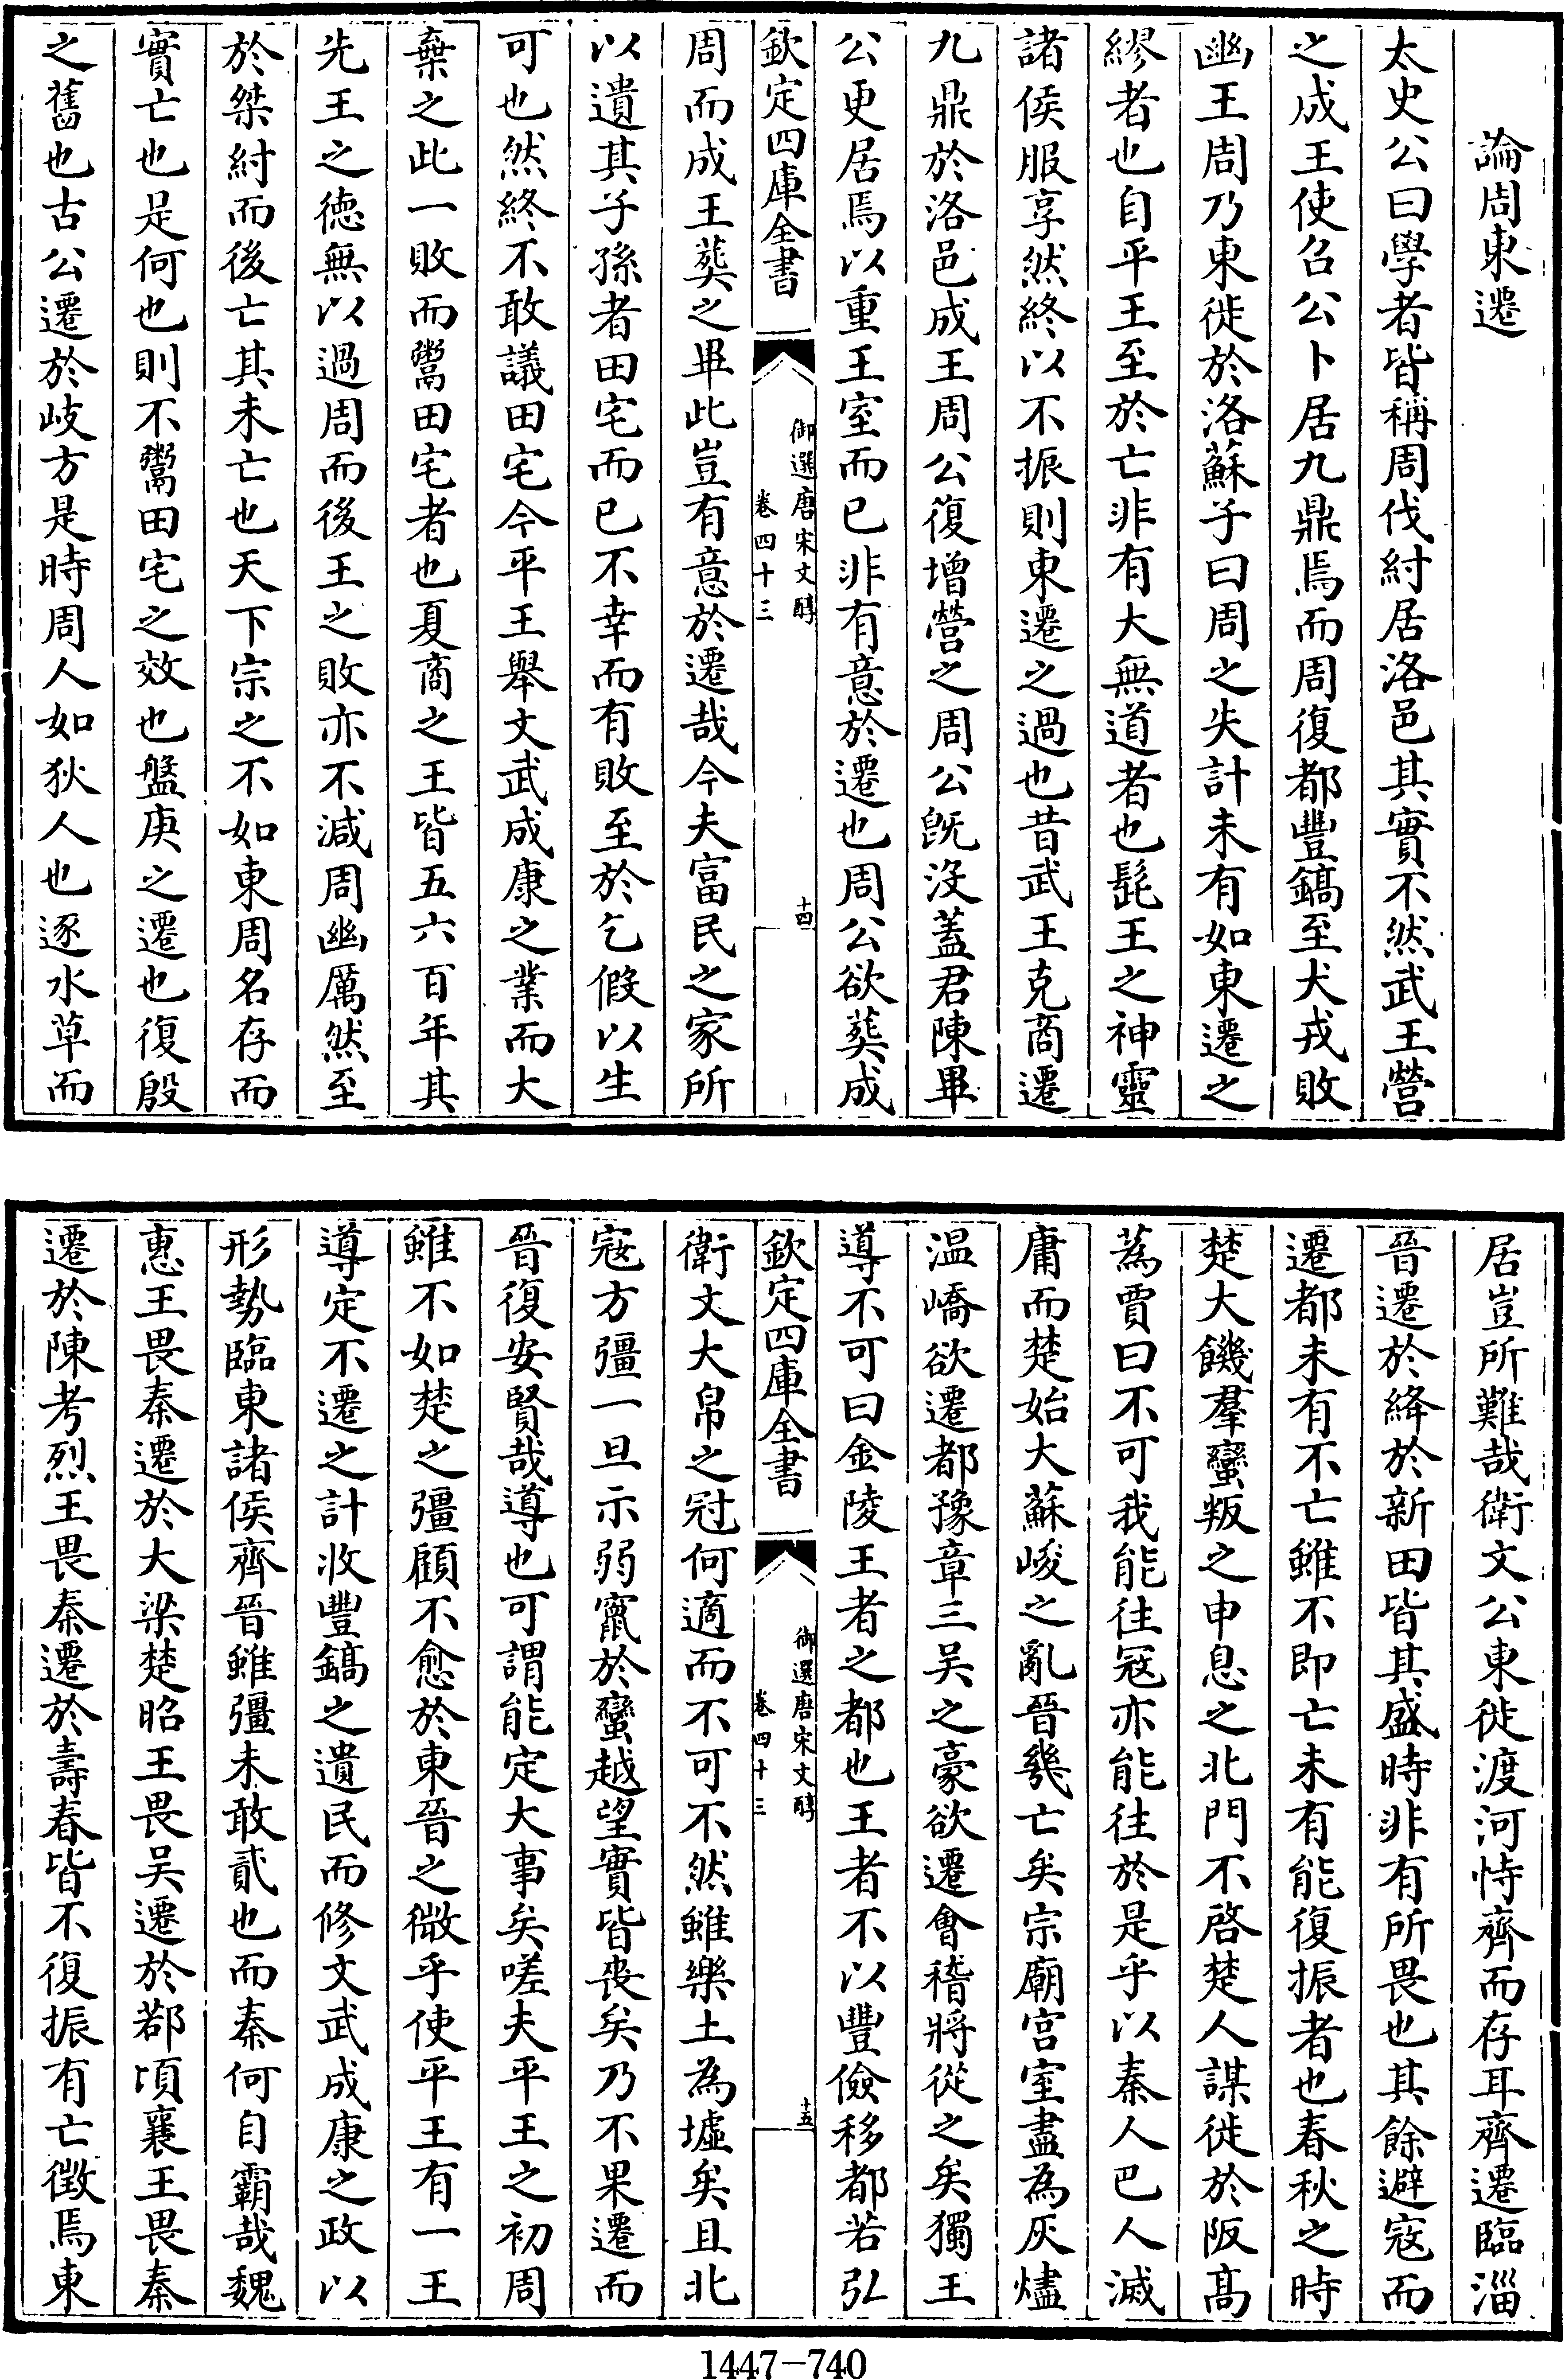 論周東遷
太史公曰學者皆稱周伐紂居洛邑其實不然武王營
之成王使召公卜居九鼎焉而周復都豐鎬至犬戎敗
幽王周乃東徙於洛蘇子曰周之失計未有如東遷之
繆者也自平王至於亡非有大無道者也髭王之神靈
諸侯服享然終以不振則東遷之過也昔武王克商遷
九鼎於洛邑成王周公復增營之周公旣沒蓋君陳畢
公更居焉以重王室而已非有意於遷也周公欲葬成
欽定四庫全書
御選唐宋文醇
卷四十三
十四
周而成王葬之畢此豈有意於遷哉今夫富民之家所
以遺其子孫者田宅而已不幸而有敗至於乞假以生
可也然終不敢議田宅今平王舉文武成康之業而大
棄之此一敗而鬻田宅者也夏商之王皆五六百年其
先王之德無以過周而後王之敗亦不減周幽厲然至
於桀紂而後亡其未亡也天下宗之不如東周名存而
實亡也是何也則不鬻田宅之效也盤庚之遷也復殷
之舊也古公遷於岐方是時周人如狄人也逐水草而
居豈所難哉衛文公東徙渡河恃齊而存耳齊遷臨淄
晉遷於絳於新田皆其盛時非有所畏也其餘避寇而
遷都未有不亡雖不即亡未有能復振者也春秋之時
楚大饑羣蠻叛之申息之北門不啓楚人謀徙於阪高
蒍賈曰不可我能往寇亦能往於是乎以秦人巴人滅
庸而楚始大蘇峻之亂晉幾亡矣宗廟宮室盡為灰燼
溫嶠欲遷都豫章三吳之豪欲遷會稽將從之矣獨王
導不可曰金陵王者之都也王者不以豐儉移都若弘
欽定四庫全書
御選唐宋文醇
卷四十三
十五
衛文大帛之冠何適而不可不然雖樂土為墟矣且北
寇方彊一旦示弱竄於蠻越望實皆喪矣乃不果遷而
晉復安賢哉導也可謂能定大事矣嗟夫平王之初周
雖不如楚之彊顧不愈於東晉之微乎使平王有一王
導定不遷之計收豐鎬之遺民而修文武成康之政以
形勢臨東諸侯齊晉雖彊未敢貳也而秦何自霸哉魏
惠王畏秦遷於大梁楚昭王畏吳遷於鄀頃襄王畏秦
遷於陳考烈王畏秦遷於壽春皆不復振有亡徵焉東
1447-740